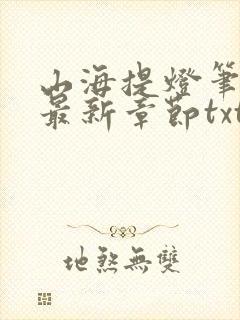 山海提燈筆
最新章節txt
地煞無雙